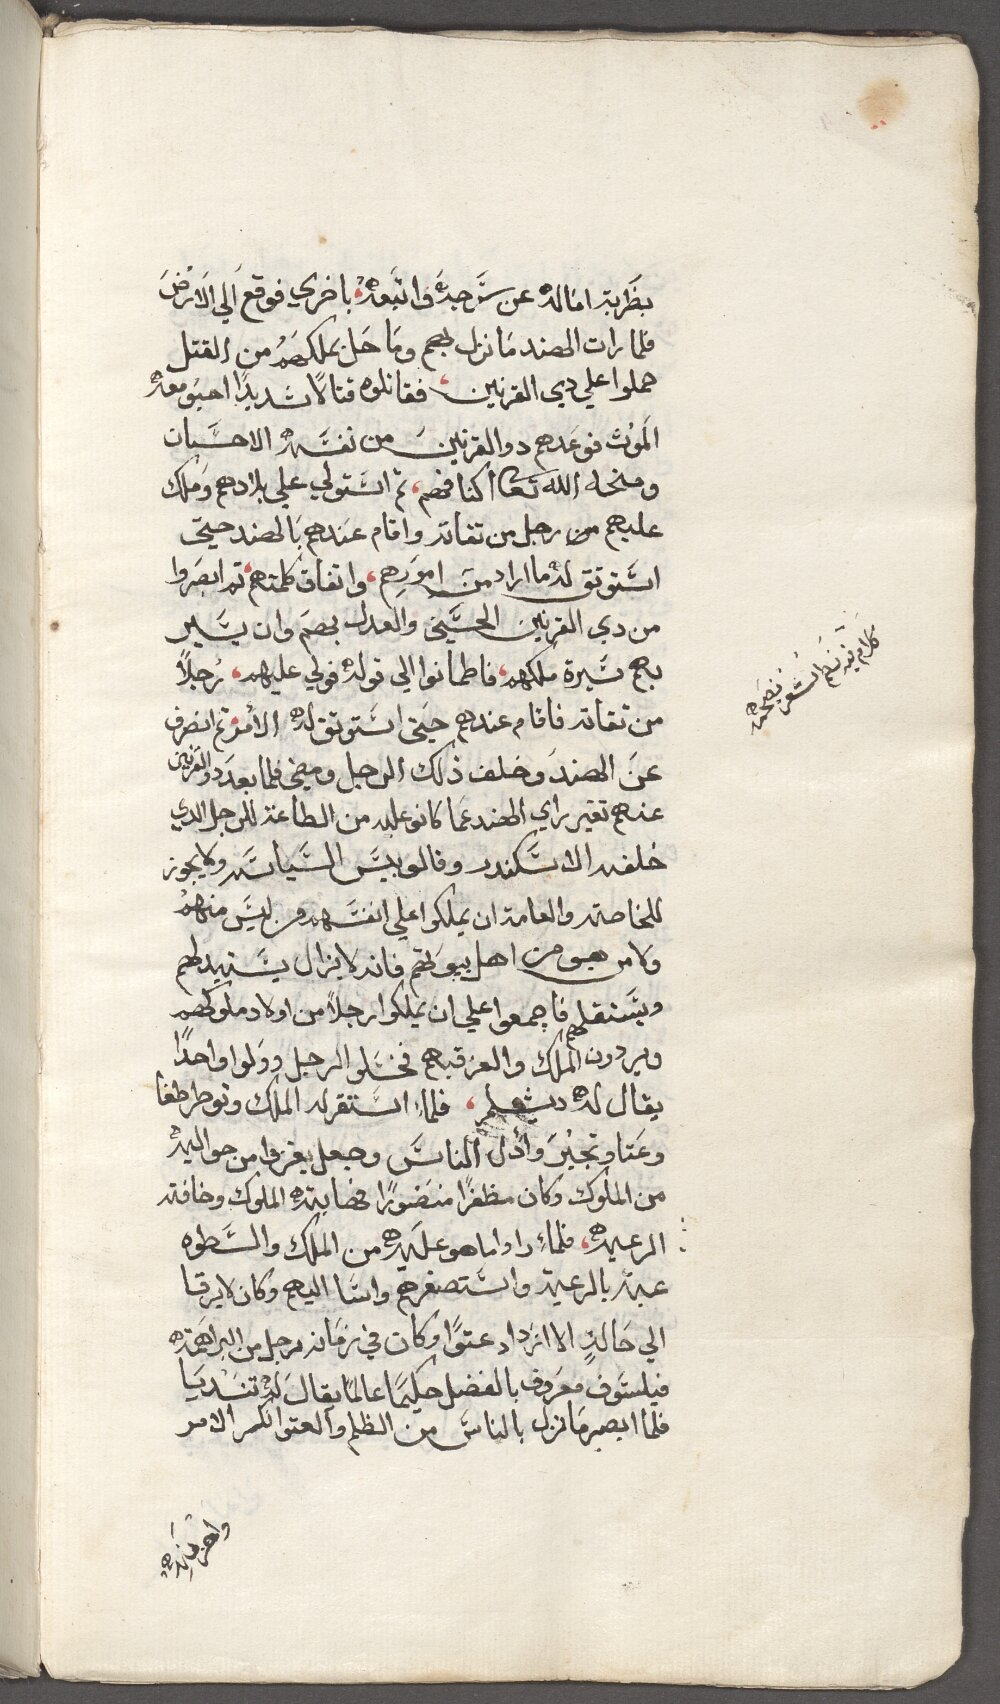 بضربة امالته عن سرجه واتبعه باخري فوقع الي الارض
فلما رات الهند ما نزل بهم وما حل بملكهم من القتل
حملوا علي دي القرنين فقاتلوه قتالا شديدا احبو معه
الموت فوعدهم دو القرنين من نفسه الاحسان
ومنحه الله تعا اكتافهم تم استولي علي بلادهم وملك
عليهم من رجل من تقاته واقام عندهم بالهند حيتي
استوتق له ما اراد من امورهم واتفاق كلمتهم تم ابصروا
من دي القرنين الحسني والعدل بهم وان يسير
بهم سيرة ملكهم فاطمانوا الي قوله فولي عليهم رجلا
من تقاته فاقام عندهم حيتي استوتق له الأمر تم انصرف
عن الهند وخلف ذلك الرجل ومضي فلما بعد دو القرنين
عنهم تغير راي الهند عما كانو عليه من الطاعة للرجل الدي
خلفه الاسكندر وقالو ليس السياسه ولا يجوز
للخاصة والعامة ان يملكوا علي انفسهم من ليس منهم
ولا من هو من اهل بيوتهم فانه لا يزال يستهيد لهم
ويستقلهم فاجمعوا علي ان يملكوا رجلا من اولاد ملوكهم
ويردون الملك والعز فيهم فخلو الرجل وولوا واحدا
يقال له دبشلم فلما استقر له الملك وتوطر طغا
وعتا وتجبر وأدل الناس وجعل يغزوا من حواليه
من الملوك وكان مظفرا منصورا فهابته الملوك وخافته
الرعيه فلما راوا ما هو عليه من الملك والسطوه
عبت بالرعية واستصغرهم واسا اليهم وكان لا يرقا
الي حالة الا ازداد عتوا وكان في زمانه رجل من البراهمه
فيلسوف معروف بالفضل حكيما عالما يقال له تندبيا
فلما ابصر ما نزل بالناس من الظلم والعتو انكر الامر